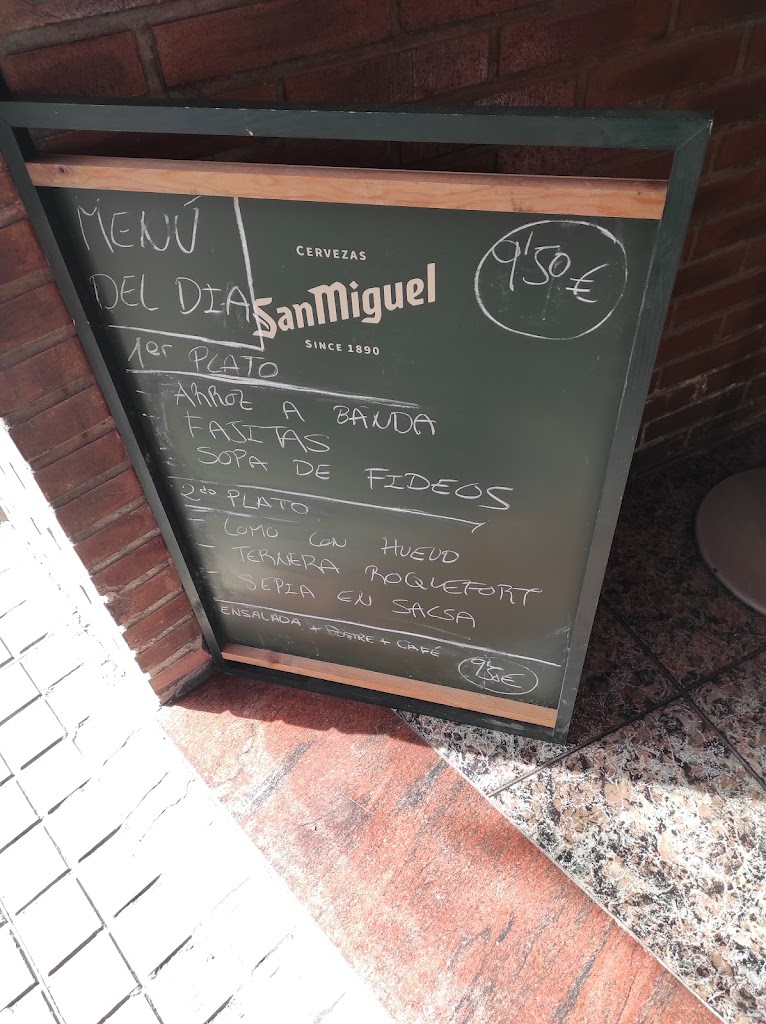 MENÚ
DEL DIA
CERVEZAS
SanMiguel
SINCE 1890
9'50€
1er PLATO
- ARROZ A BANDA
- FAJITAS
- SOPA DE FIDEOS
2do PLATO
- LOMO CON HUEVO
- TERNERA ROQUEFORT
- SEPIA EN SALSA
ENSALADA + POSTRE + CAFÉ
9'50€